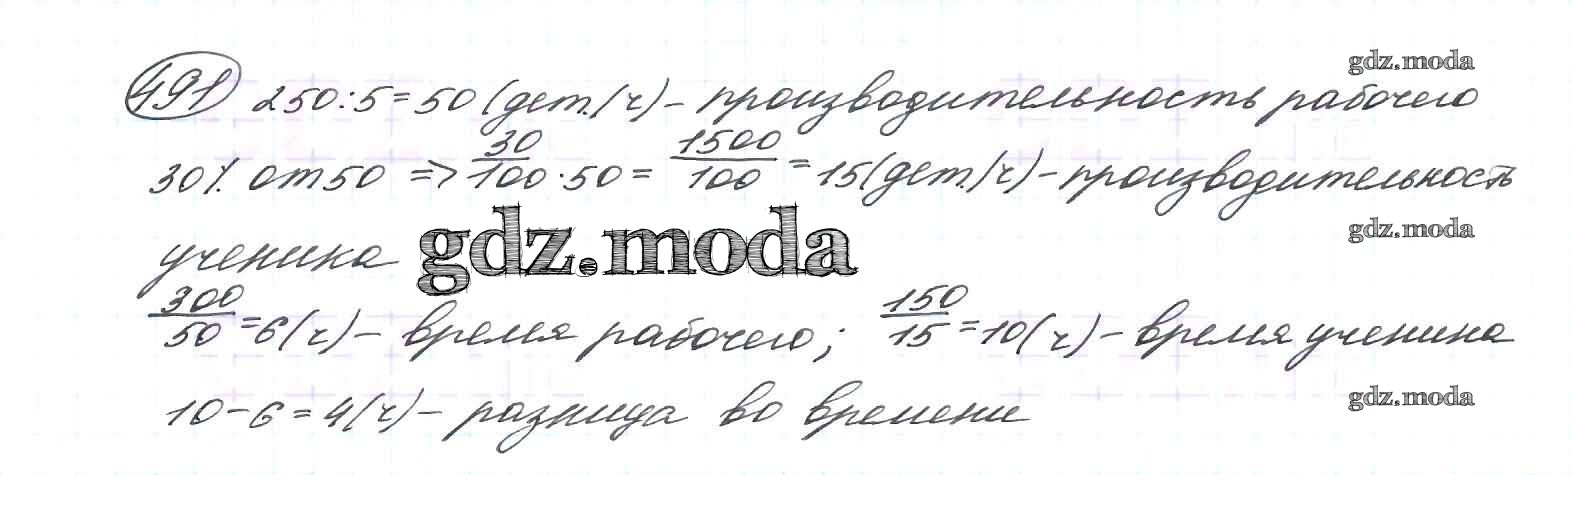 gdz.moda
491 250:5=50 (дет./ч) - производительность рабочего
30% от 50 => 30/100 · 50 = 1500/100 = 15 (дет./ч) - производительность
gdz.moda
ученика gdz.moda
300/50 = 6 (ч) - время рабочего; 150/15 = 10 (ч) - время ученика
gdz.moda
10 - 6 = 4 (ч) - разница во времени